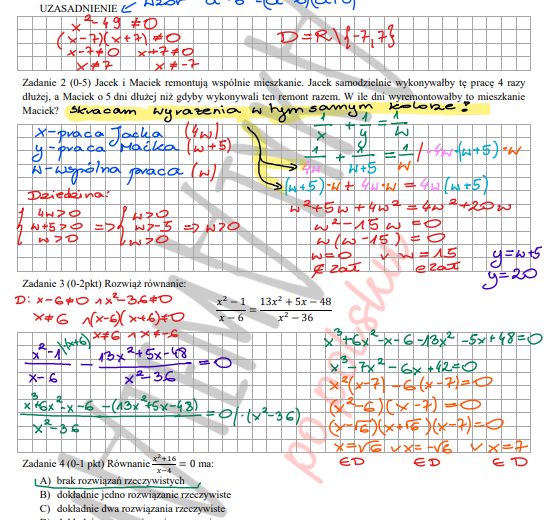 UZASADNIENIE
x²-49≠0
(x-7)(x+7)≠0
x-7≠0 x+7≠0
x≠7 x≠-7
D=R\{-7,7}
Zadanie 2 (0-5) Jacek i Maciek remontują wspólnie mieszkanie. Jacek samodzielnie wykonywałby tę pracę 4 razy
dłużej, a Maciek o 5 dni dłużej niż gdyby wykonywali ten remont razem. W ile dni wyremontowałby to mieszkanie
Maciek? Skracam wyrażenia w tym samym kolorze!
x-praca Jacka (4w)
y-praca Maćka (w+5)
w-wspólna praca (w)
Dziedzina:
4w>0
w+5>0 => w>-5 => w>0
w>0 w>0
1/x + 1/y = 1/w
1/4w + 1/w+5 = 1/w /·4w·(w+5)·w
(w+5)·w + 4w·w = 4w(w+5)
w²+5w+4w²=4w²+20w
w²-15w=0
w(w-15)=0
w=0 v w=15
∉zał ∈zał
y=w+5
y=20
Zadanie 3 (0-2pkt) Rozwiąż równanie:
D: x-6≠0 ∧ x²-36≠0
x≠6 ∧(x-6)(x+6)≠0
x≠6 ∧ x≠-6
x² − 1 / x − 6 = 13x² + 5x − 48 / x² − 36
x²-1 /·(x+6) / x-6 - 13x²+5x-48 / x²-36 = 0
x³+6x²-x-6-(13x²+5x-48) / x²-36 = 0 /·(x²-36)
x³+6x²-x-6-13x²-5x+48=0
x³-7x²-6x+42=0
x²(x-7)-6(x-7)=0
(x²-6)(x-7)=0
(x-√6)(x+√6)(x-7)=0
x=√6 v x=-√6 v x=7
∈D ∈D ∈D
Zadanie 4 (0-1 pkt) Równanie x²+16 / x−4 = 0 ma:
A) brak rozwiązań rzeczywistych
B) dokładnie jedno rozwiązanie rzeczywiste
C) dokładnie dwa rozwiązania rzeczywiste
po polsku